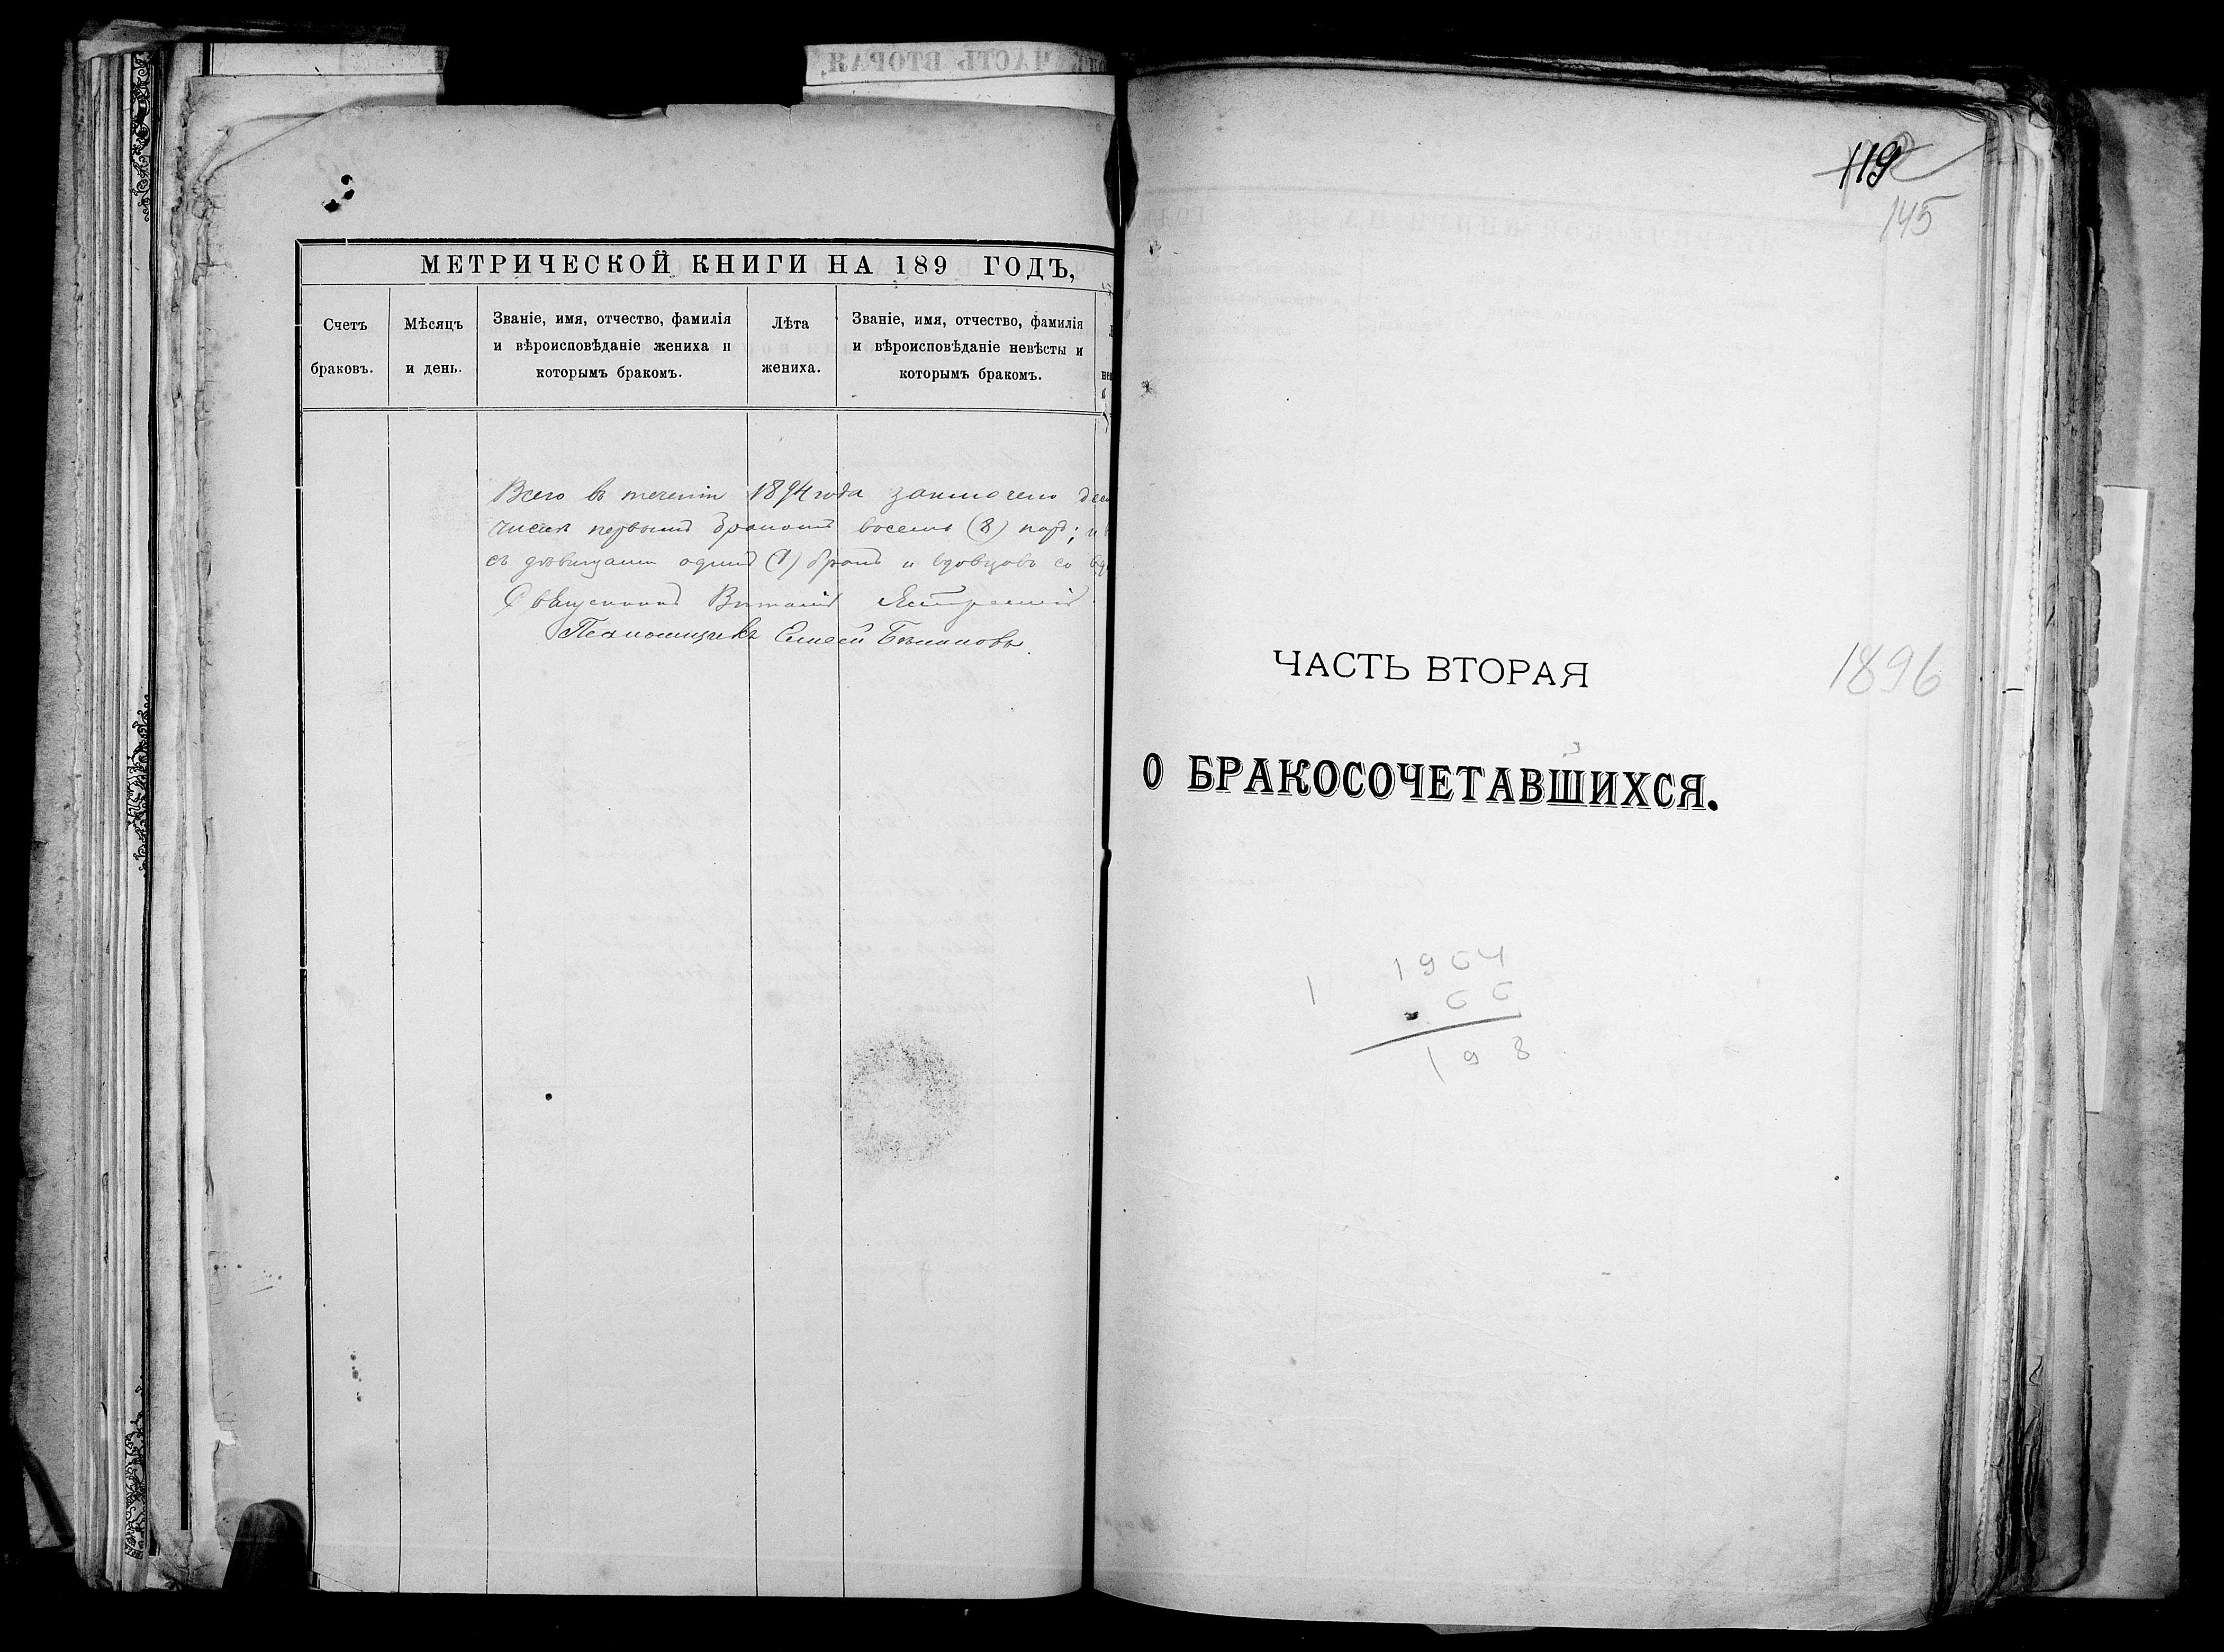 МЕТРИЧЕСКОЙ КНИГИ НА 189 ГОДЪ,
Счетъ браковъ.
Мѣсяцъ и день.
Званіе, имя, отчество, фамилія
и вѣроисповѣданіе жениха и
которымъ бракомъ.
Лѣта жениха.
Званіе, имя, отчество, фамилія
и вѣроисповѣданіе невѣсты и
которымъ бракомъ.
Всего въ теченіи 1894 года заключено
числѣ первымъ бракомъ восемь (8) паръ; и
съ дѣвицами одинъ (1) бракъ и вдовцовъ со
Священникъ Виталій
Псаломщикъ
119
145
ЧАСТЬ ВТОРАЯ
1896
О БРАКОСОЧЕТАВШИХСЯ.
1 1964
66
198